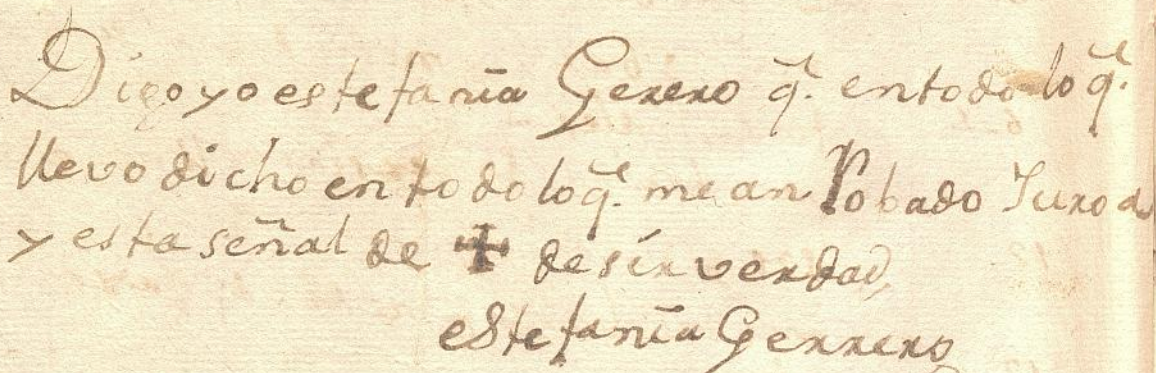 Digo yo estefania Gerero q.e en todo lo q.e
llevo dicho en todo lo q.e me an Robado Juro a
y esta señal de ✝ desir verdad
estefania Gerrero